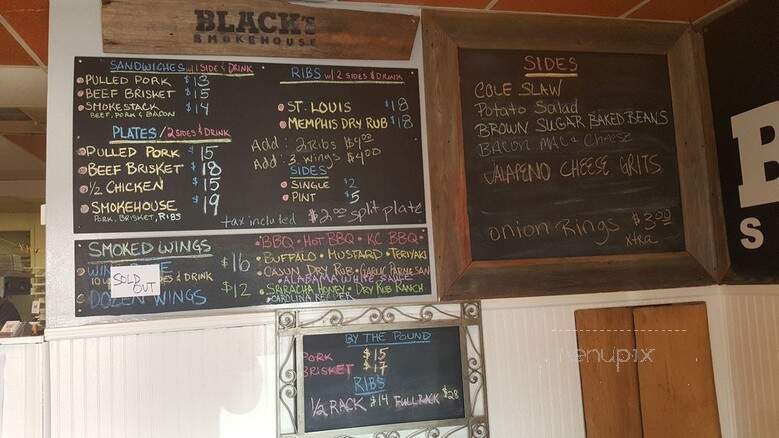 BLACK'S
SMOKEHOUSE
SANDWICHES w/1 SIDE & DRINK
PULLED PORK $13
BEEF BRISKET $15
SMOKESTACK $14
BEEF, PORK & BACON
PLATES / 2 SIDES & DRINK
PULLED PORK $15
BEEF BRISKET $18
1/2 CHICKEN $15
SMOKEHOUSE $19
PORK, BRISKET, RIBS
RIBS w/ 2 SIDES & DRINK
ST. LOUIS $18
MEMPHIS DRY RUB $18
Add: 2 Ribs $4.00
Add: 3 wings $4.00
SIDES
SINGLE $2
PINT $5
tax included $2.00 split plate
SMOKED WINGS
$16
SOLD OUT
DOZEN WINGS $12
BBQ • HOT BBQ • KC BBQ
BUFFALO • MUSTARD • TERIYAKI
CAJUN DRY RUB • GARLIC PARMESAN
ALABAMA WHITE SAUCE
SRIRACHA HONEY • DRY RUB RANCH
CAROLINA REAPER
SIDES
COLE SLAW
Potato Salad
BROWN SUGAR BAKED BEANS
BACON MAC & Cheese
JALAPENO CHEESE GRITS
onion Rings $3.00
xtra
BY THE POUND
PORK $15
BRISKET $17
RIBS
1/2 RACK $14 FULL RACK $28
B
S
menupix